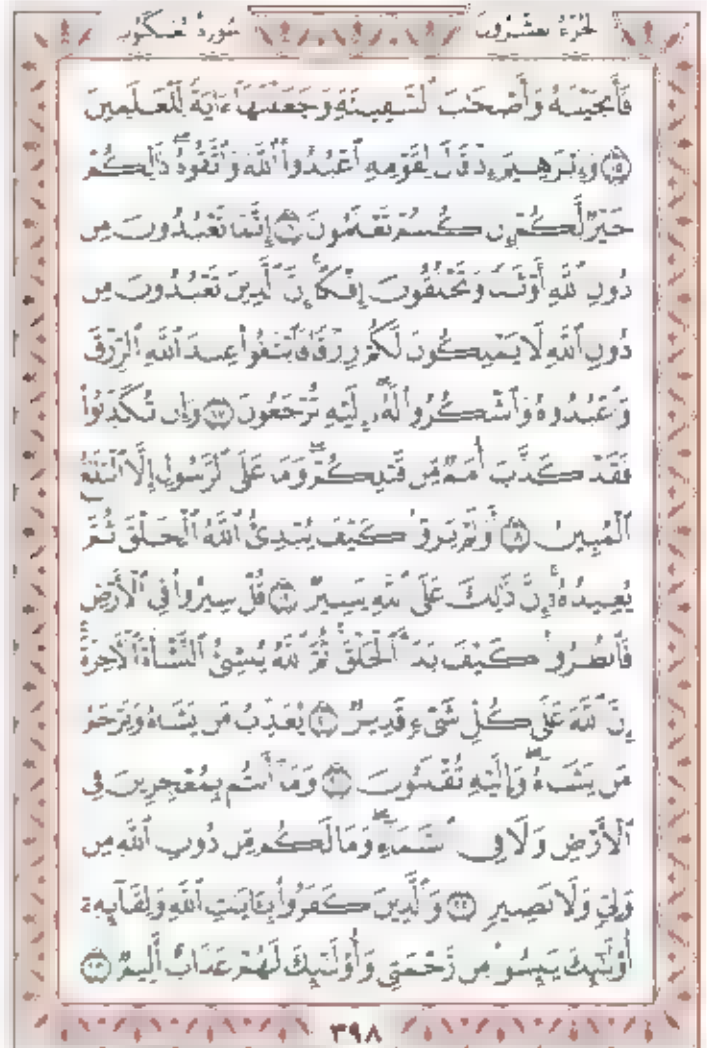 الجزء العشرون سورة العنكبوت
فَأَنجَيْنَٰهُ وَأَصْحَٰبَ ٱلسَّفِينَةِ وَجَعَلْنَٰهَآ ءَايَةً لِّلْعَٰلَمِينَ
۝١٥ وَإِبْرَٰهِيمَ إِذْ قَالَ لِقَوْمِهِ ٱعْبُدُوا۟ ٱللَّهَ وَٱتَّقُوهُ ۖ ذَٰلِكُمْ
خَيْرٌ لَّكُمْ إِن كُنتُمْ تَعْلَمُونَ ۝١٦ إِنَّمَا تَعْبُدُونَ مِن
دُونِ ٱللَّهِ أَوْثَٰنًا وَتَخْلُقُونَ إِفْكًا ۚ إِنَّ ٱلَّذِينَ تَعْبُدُونَ مِن
دُونِ ٱللَّهِ لَا يَمْلِكُونَ لَكُمْ رِزْقًا فَٱبْتَغُوا۟ عِندَ ٱللَّهِ ٱلرِّزْقَ
وَٱعْبُدُوهُ وَٱشْكُرُوا۟ لَهُۥٓ ۖ إِلَيْهِ تُرْجَعُونَ ۝١٧ وَإِن تُكَذِّبُوا۟
فَقَدْ كَذَّبَ أُمَمٌ مِّن قَبْلِكُمْ ۖ وَمَا عَلَى ٱلرَّسُولِ إِلَّا ٱلْبَلَٰغُ
ٱلْمُبِينُ ۝١٨ أَوَلَمْ يَرَوْا۟ كَيْفَ يُبْدِئُ ٱللَّهُ ٱلْخَلْقَ ثُمَّ
يُعِيدُهُۥٓ ۚ إِنَّ ذَٰلِكَ عَلَى ٱللَّهِ يَسِيرٌ ۝١٩ قُلْ سِيرُوا۟ فِى ٱلْأَرْضِ
فَٱنظُرُوا۟ كَيْفَ بَدَأَ ٱلْخَلْقَ ۚ ثُمَّ ٱللَّهُ يُنشِئُ ٱلنَّشْأَةَ ٱلْءَاخِرَةَ ۚ
إِنَّ ٱللَّهَ عَلَىٰ كُلِّ شَىْءٍ قَدِيرٌ ۝٢٠ يُعَذِّبُ مَن يَشَآءُ وَيَرْحَمُ
مَن يَشَآءُ ۖ وَإِلَيْهِ تُقْلَبُونَ ۝٢١ وَمَآ أَنتُم بِمُعْجِزِينَ فِى
ٱلْأَرْضِ وَلَا فِى ٱلسَّمَآءِ ۖ وَمَا لَكُم مِّن دُونِ ٱللَّهِ مِن
وَلِىٍّ وَلَا نَصِيرٍ ۝٢٢ وَٱلَّذِينَ كَفَرُوا۟ بِـَٔايَٰتِ ٱللَّهِ وَلِقَآئِهِۦٓ
أُو۟لَٰٓئِكَ يَئِسُوا۟ مِن رَّحْمَتِى وَأُو۟لَٰٓئِكَ لَهُمْ عَذَابٌ أَلِيمٌ ۝٢٣
٣٩٨